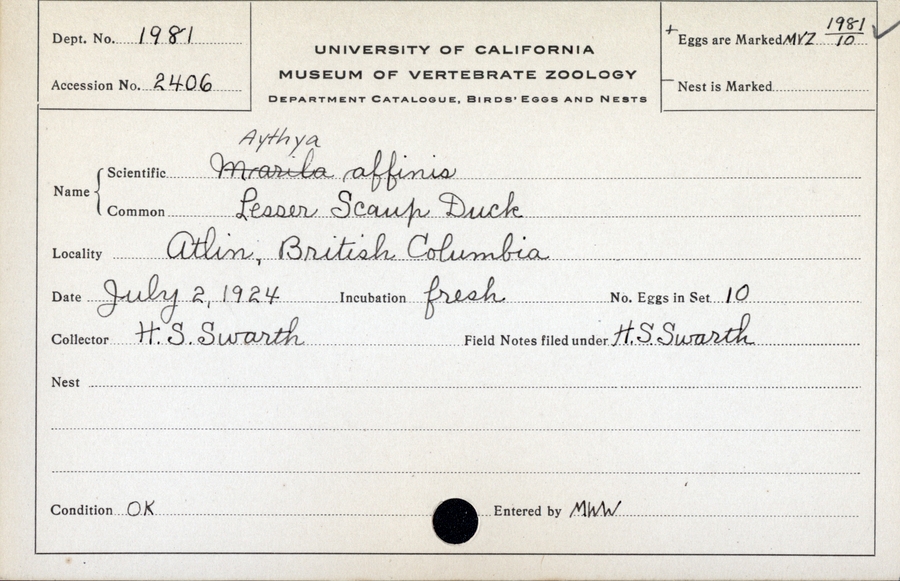 Dept. No. 1981
Accession No. 2406
UNIVERSITY OF CALIFORNIA
MUSEUM OF VERTEBRATE ZOOLOGY
DEPARTMENT CATALOGUE, BIRDS' EGGS AND NESTS
+ Eggs are Marked MVZ 1981/10 ✓
— Nest is Marked
Aythya
Name { Scientific Marila affinis
Common Lesser Scaup Duck
Locality Atlin, British Columbia
Date July 2, 1924 Incubation fresh No. Eggs in Set 10
Collector H. S. Swarth Field Notes filed under H. S. Swarth
Nest
Condition OK Entered by MWW